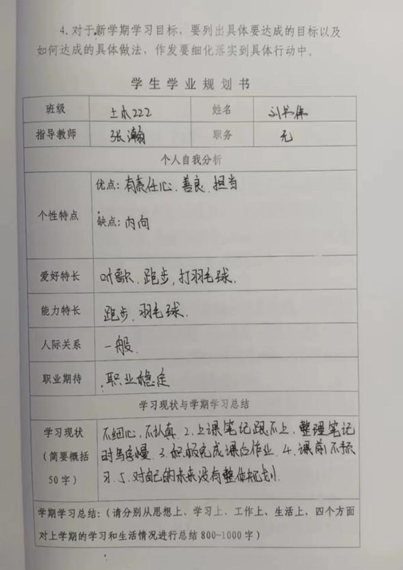 4. 对于新学期学习目标，要列出具体要达成的目标以及
如何达成的具体做法，作发要细化落实到具体行动中。
学生学业规划书
班级 土木222 姓名
指导教师 张瀚 职务 无
个人自我分析
个性特点 优点: 有责任心、善良、担当
缺点: 内向
爱好特长 唱歌、跑步, 打羽毛球.
能力特长 跑步、羽毛球.
人际关系 一般.
职业期待 职业稳定
学习现状与学期学习总结
学习现状 不细心、不认真 2. 上课笔记跟不上、整理笔记
（简要概括 时 慢 3. 完成课后作业 4. 课前不预
50 字） 习. 5. 对自己的未来没有整体规划.
学期学习总结:（请分别从思想上、学习上、工作上、生活上，四个方面
对上学期的学习和生活情况进行总结 800-1000 字）